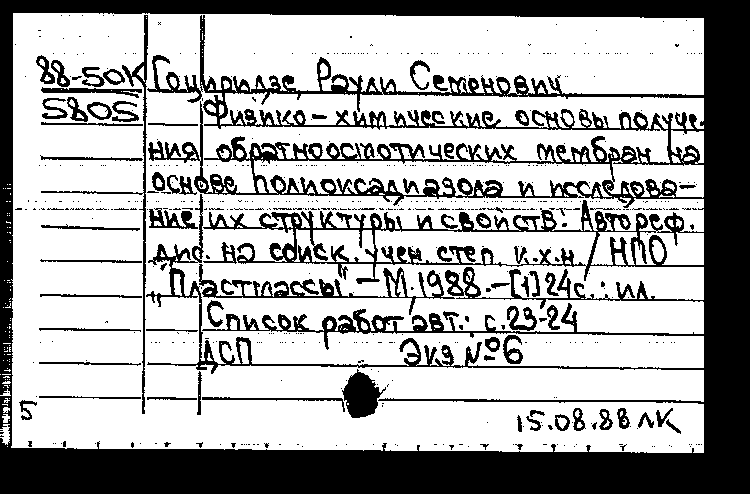 88-50К Гоциридзе, Раули Семенович.
5805 Физико-химические основы получе-
ния обратноосмотических мембран на
основе полиоксадиазола и исследова-
ние их структуры и свойств: Автореф.
дис. на соиск. учен. степ. к.х.н. / НПО
„Пластмассы". - М. 1988. - [1] 24 с.: ил.
Список работ авт.: с. 23-24
ДСП Экз № 6
5
15.08.88 ЛК